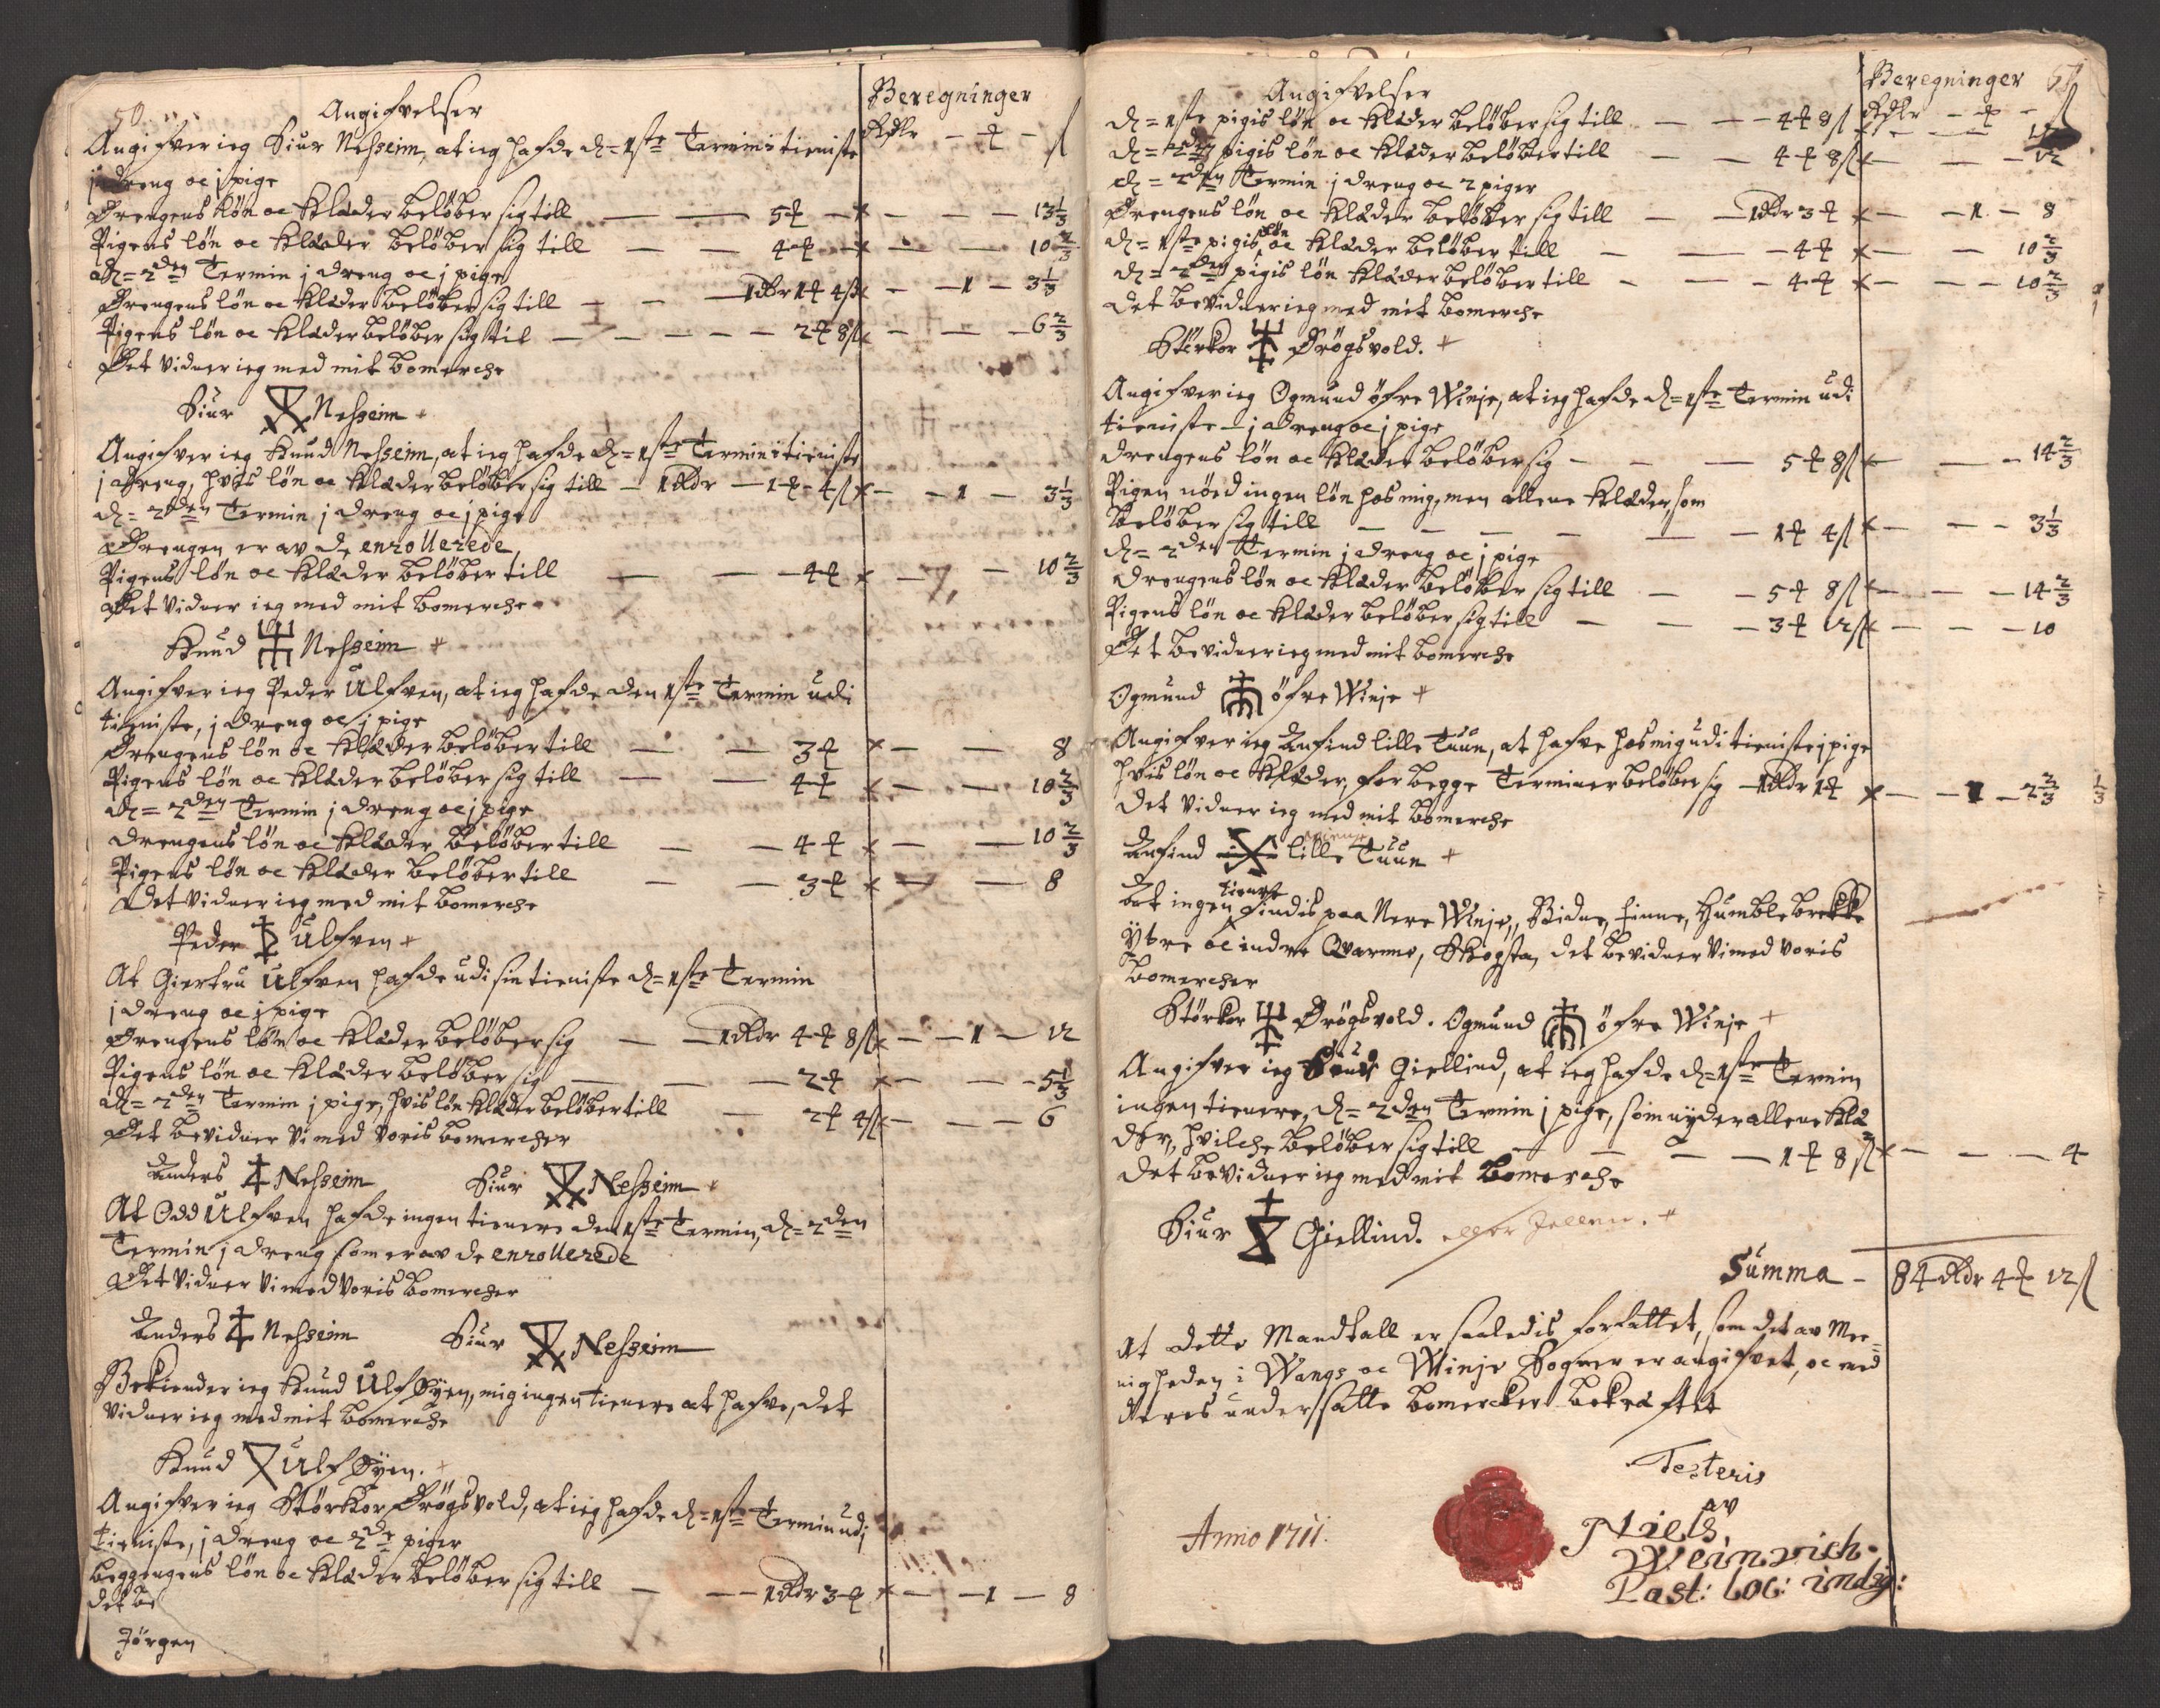 50.
Angifvelser
Beregninger
Angifver ieg Siur Nesheim, at ieg hafde d= 1ste Termin i tieniste Rdlr - ꝕ - ß
j dreng oc j pige
Drengens løn oc Klæder beløber sig till — — 5 ꝕ — x — — — 13 1/3
Pigens løn oc Klæder beløber sig till — — 4 ꝕ — x — — 10 2/3
d= 2den Termin j dreng oc j pige
Drengens løn oc Klæder beløber sig till — — 1 Rdr 1 ꝕ 4 ß x — — 1 — 3 1/3
Pigens løn oc Klæder beløber sig til — — — — 2 ꝕ 8 ß x — — — 6 2/3
Det vidner ieg med mit bomerche
Siur Nesheim
Angifver ieg Knud Nesheim, at ieg hafde d= 1ste Termin i tieniste
j dreng, hvis løn oc Klæder beløber sig till — 1 Rdr — 1 ꝕ - 4 ß x — — 1 — 3 1/3
d= 2den Termin j dreng oc j pige
Drengen er av de enrollerede
Pigens løn oc Klæder beløber till — — 4 ꝕ x — — 10 2/3
Det vidner ieg med mit bomerche
Knud Nesheim
Angifver ieg Peder Ulfven, at ieg hafde den 1ste Termin udi
tieniste, j dreng oc j pige
Drengens løn oc Klæder beløber till — — 3 ꝕ x — — 8
Pigens løn oc Klæder beløber sig till — — 4 ꝕ x — — 10 2/3
d= 2den Termin j dreng oc j pige
drengens løn oc Klæder beløber till — — 4 ꝕ x — — 10 2/3
Pigens løn oc Klæder beløber till — — 3 ꝕ x — — 8
Det vidner ieg med mit bomerche
Peder Ulfven
At Giertru Ulfven hafde udi sin tieniste d= 1ste Termin
j dreng oc j pige
Drengens løn oc Klæder beløber sig — — 1 Rdr 4 ꝕ 8 ß x — — 1 — 12
Pigens løn oc Klæder beløber sig — — — 2 ꝕ x — — — 5 1/3
d= 2den Termin j pige, hvis løn Klæder beløber till — 2 ꝕ 4 ß x — — — 6
Det bevidner vi med voris bomercher
Anders Nesheim Siur Nesheim
At Odd Ulfven hafde ingen tienere den 1ste Termin, d= 2den
Termin j dreng som er av de enrollerede
Det vidner vi med voris bomercher
Anders Nesheim Siur Nesheim
Bekiender ieg Knud Ulf Øyen, mig ingen tienere at hafve, det
vidner ieg med mit bomerche
Knud Ulf Øyen.
Angifver ieg Størkor Drøgsvold, at ieg hafde d= 1ste Termin udi
tieniste, j dreng oc 2de piger
løn oc Klæder beløber sig till — — 1 Rdr 3 ꝕ x — — 1 — 8
det be
Jørgen
Angifvelser
Beregninger
d= 1ste pigis løn oc Klæder beløber sig till — — 4 ꝕ 8 ß Rdlr - ꝕ - ß
d= 2den pigis løn oc Klæder beløber till — — 4 ꝕ 8 ß x — — — 12
d= 2den Termin j dreng oc 2 piger
Drengens løn oc Klæder beløber sig till — — 1 Rdr 3 ꝕ x — — 1 — 8
d= 1ste pigis løn oc Klæder beløber till — — 4 ꝕ x — — 10 2/3
d= 2den pigis løn Klæder beløber till — — — 4 ꝕ x — — — 10 2/3
det bevidner ieg med mit bomerche
Størkor Drøgsvold.
Angifver ieg Ogmund öfre Winje, at ieg hafde d= 1ste Termin udi
tieniste — j dreng oc j pige
drengens løn oc Klæder beløber sig — — — 5 ꝕ 8 ß x — — — 14 2/3
Pigen nöed ingen løn hos mig, men allene Klæder, som
beløber sig till — — — — — — 1 ꝕ 4 ß x — — — 3 1/3
d= 2den Termin j dreng oc j pige
drengens løn oc Klæder beløber sig till — — 5 ꝕ 8 ß x — — — 14 2/3
Pigens løn oc Klæder beløber sig till — — — 3 ꝕ 12 ß x — — — 10
Det bevidner ieg med mit bomerche
Ogmund öfre Winje
Angifver ieg Anfind lille Tuun, at hafve hos mig udi tieniste j pige
hvis løn oc Klæder, for begge Terminer beløber sig — 1 Rdr 1 ꝕ x — — 1 — 2 2/3 1/3
det vidner ieg med mit bomerche
Anfind lille Tuun
At ingen tienere findis paa Nere Winje, Bidne, Finne, Humblebrekke
Ytre oc indre Qvarme, Skogsta, det bevidner vi med voris
bomercher
Størkor Drøgsvold. Ogmund öfre Winje
Angifver ieg Siur Giellind, at ieg hafde d= 1ste Termin
ingen tienere, d= 2den Termin j pige, som nyder allene Klæ
der, hvilche beløber sig till — — — — 1 ꝕ 8 ß x — — — 4
det bevidner ieg med mit bomerche
Siur Giellind. eller
Summa — 84 Rdr 4 ꝕ 12 ß
At dette Mandtall er saaledis forfattet, som det av Me=
nigheden i Wangs oc Winje Sogner er angifvet, oc med
deres undersatte bomercker bekræftet
Testeris
av
Anno 1711.
Niels
Weinwich.
Past: loc: indig: